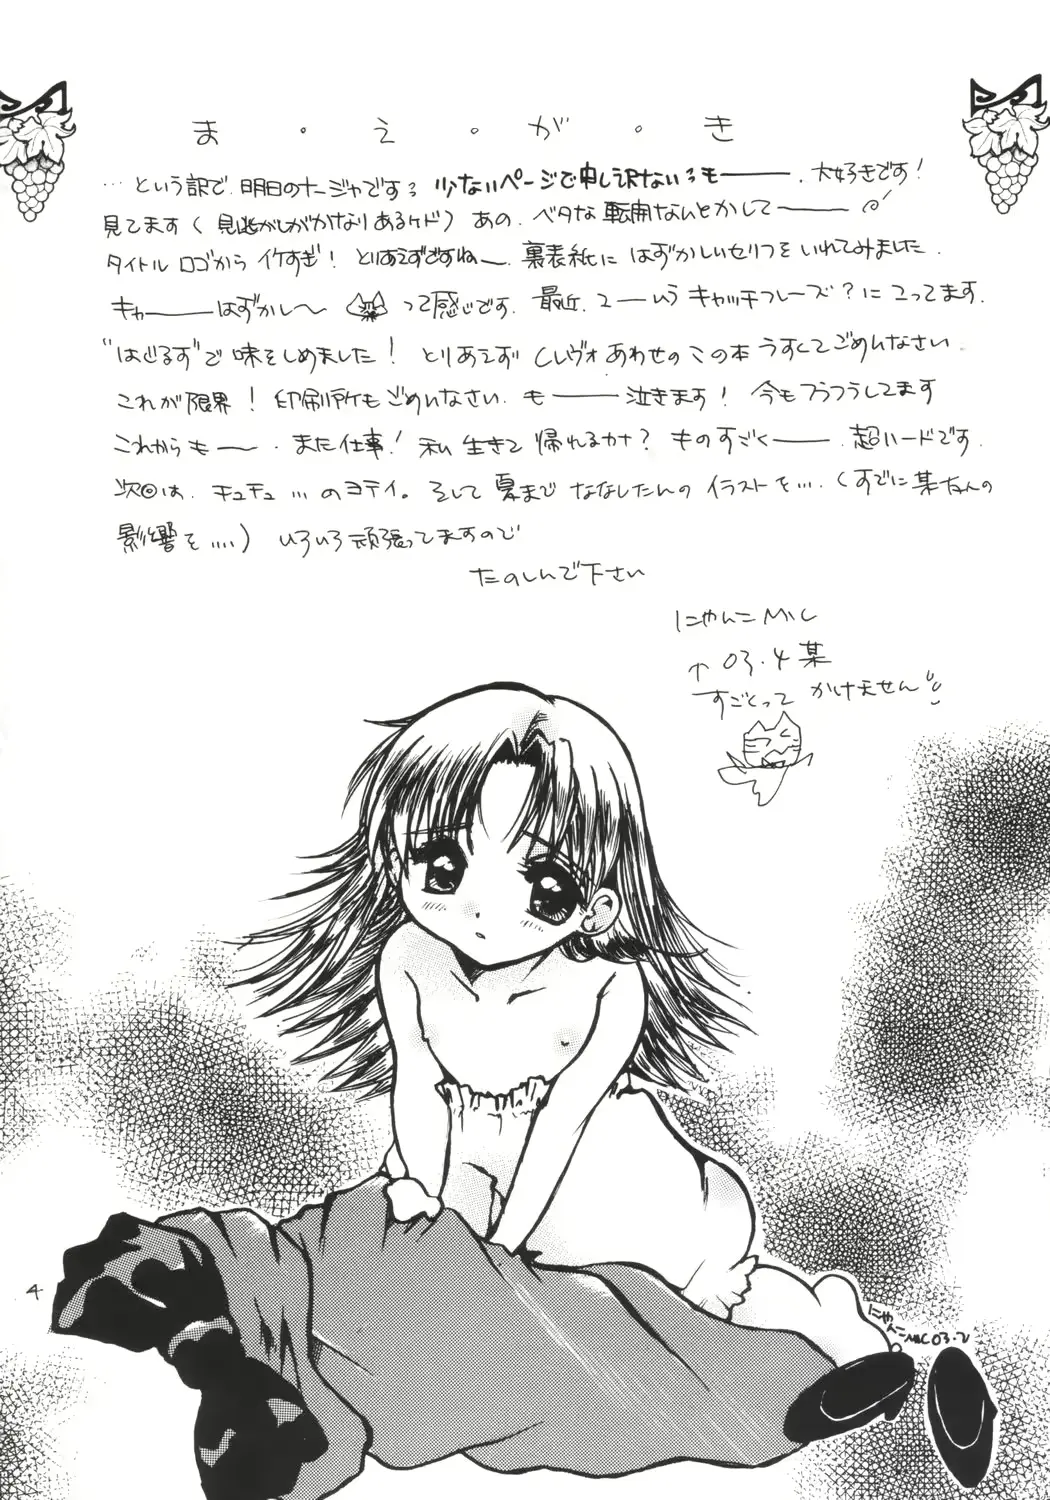 ま・え・が・き
…という訳で、明日のナージャですろ 少ないページで申し訳ないろもーーー、大好きです!
見てます(見逃がしがかなりあるケド)あの、ベタな展開ないとかしてーーー
タイトルロゴからイケすぎ! とりあえずですねー、裏表紙にはずかしいセリフをいれてみました、
キャーーーはずかし～ って感じです、最近、こーいうキャッチフレーズ?にこってます、
"はじるす"で味をしめました! とりあえずCレヴォあわせのこの本うすくてごめんなさい
これが限界! 印刷所もごめんなさい、もーーー泣きます! 今もフラフラしてます
これからもー、また仕事! 私生きて帰れるカナ? ものすごくーーー、超ハードです、
次回は、チュチュ…のヨテイ。そして夏までななしたんのイラストを…、(すでに某ちゃんの
影響を‥‥)いろいろ頑張ってますので
たのしんで下さい
にゃんこMIC
↑03.4某
すごとって かけません
4
にゃんこMIC03.2